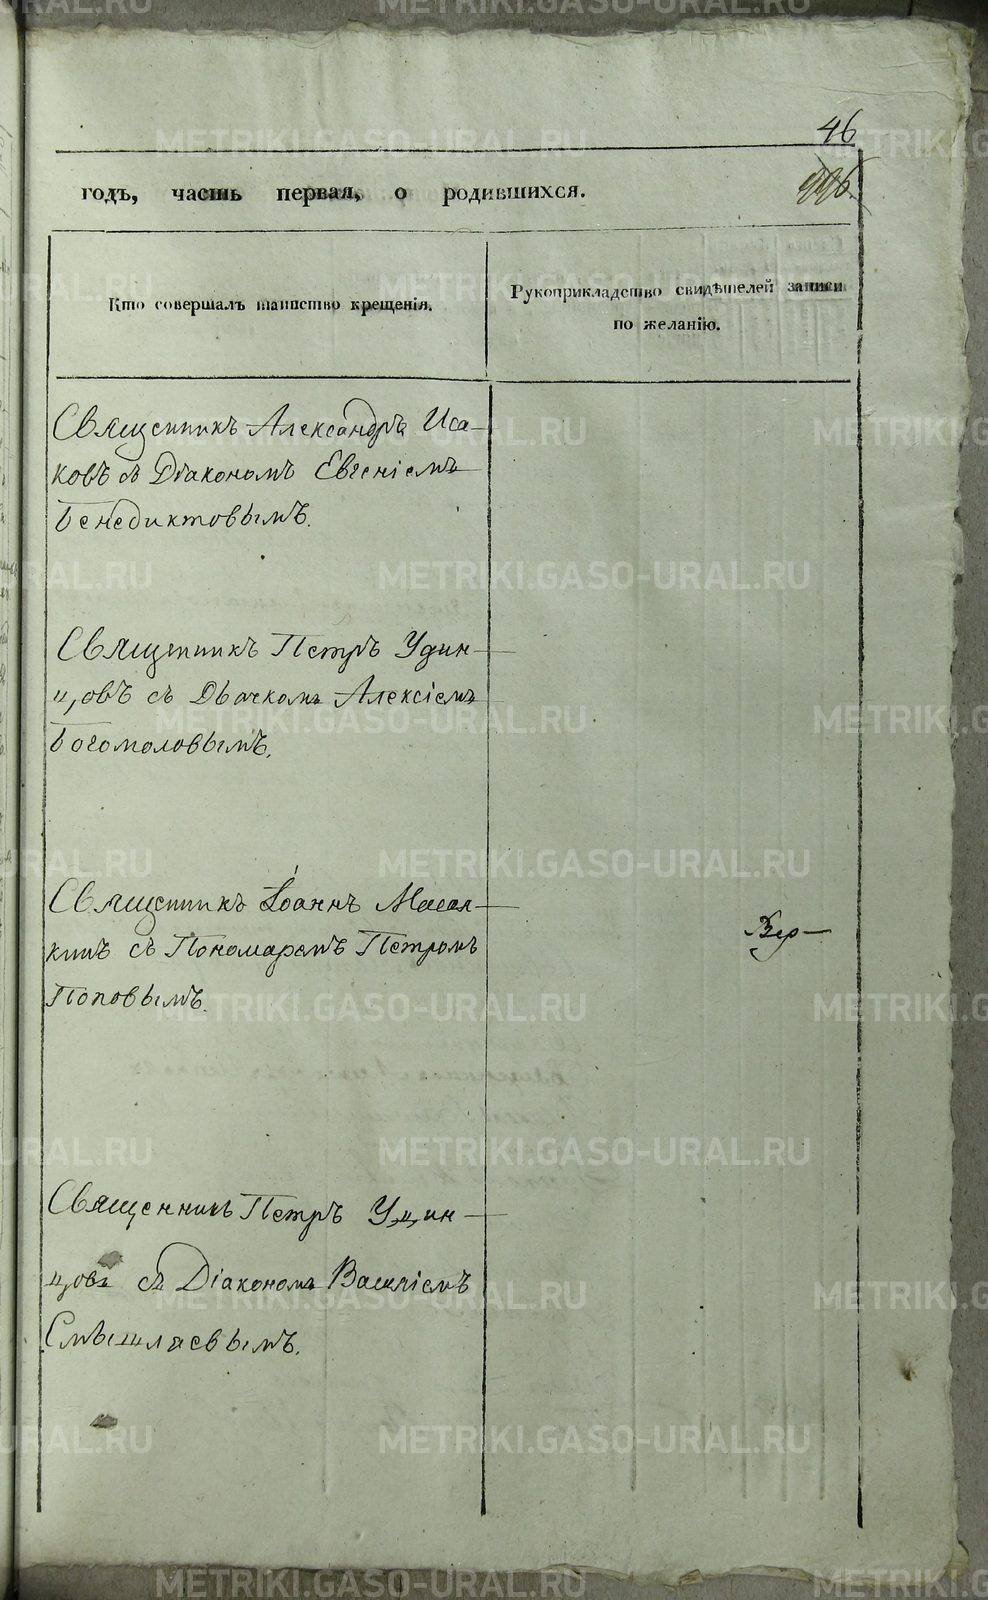 46
годъ, часть первая, о родившихся.
996.
Кто совершалъ таинство крещенія.
Рукоприкладство свидѣтелей записи
по желанію.
Священникъ Александръ Иса-
ковъ съ Діакономъ Евгеніемъ
Бенедиктовымъ.
Священникъ Петръ Удин-
цовъ съ Дьячкомъ Алексіемъ
Богомоловымъ.
Священникъ Іоаннъ
съ Пономаремъ Петромъ
Поповымъ.
Священникъ Петръ Удин-
цовъ съ Діакономъ Василіемъ
Смышляевымъ.
METRIKI.GASO-URAL.RU